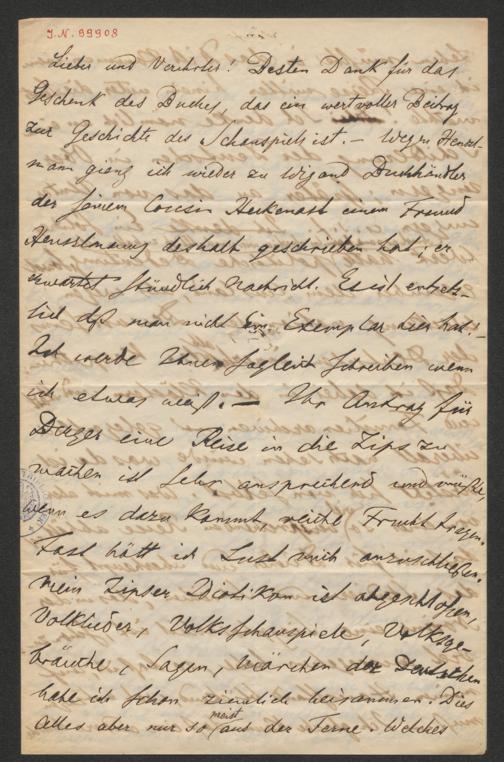 J.N. 99908
Lieber und Verehrter! Besten Dank für das
Geschenk des Buches, das ein wertvoller Beitrag
zur Geschichte des Schauspiels ist. – Wegen Henszl-
mann gieng ich wieder zu Wigand Buchhändler
der seinem Cousin Heckenast einem Freund
Henszlmanns deshalb geschrieben hat; er
erwartet stündlich Nachricht. Es ist entsetz-
lich dß man nicht Ein Exemplar hier hat! –
Ich werde Ihnen sogleich schreiben wenn
ich etwas weiß. – Ihr Antrag für
eine Reise in die Zips zu
machen ist sehr ansprechend und müßte,
wenn es dazu kommt, reiche Frucht tragen.
Fast hätt ich Lust mich anzuschließen.
Mein Zipser Idiotikon ist abgeschloßen,
Volkslieder, Volksschauspiele, Volksge-
bräuche, Sagen, Märchen der Deutschen
habe ich schon ziemlich beisammen. Dies
Alles aber nur so meist aus der Ferne. Welches